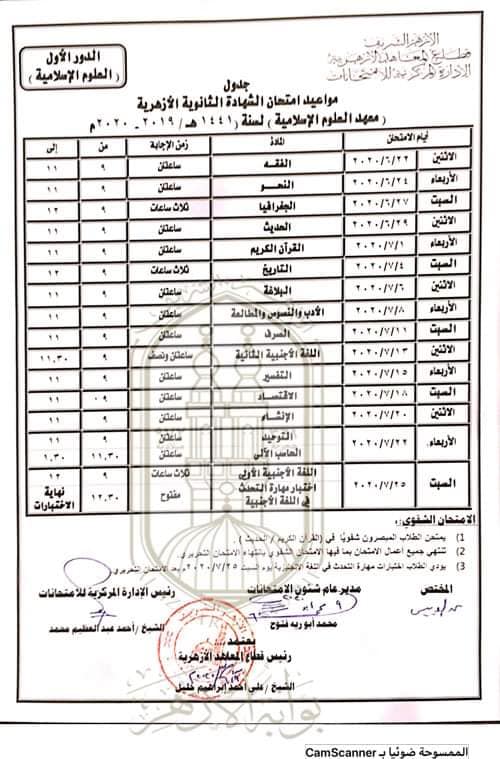 الأزهر الشريف
قطاع المعاهد الأزهرية
الإدارة المركزية للامتحانات
الدور الأول
( العلوم الإسلامية )
جدول
مواعيد امتحان الشهادة الثانوية الأزهرية
( معهد العلوم الإسلامية ) لسنة ( ١٤٤١هـ / ٢٠١٩ - ٢٠٢٠م
أيام الامتحان المادة زمن الإجابة من إلى
الاثنين ٢٠٢٠/٦/٢٢ الفقه ساعتان ٩ ١١
الأربعاء ٢٠٢٠/٦/٢٤ النحو ساعتان ٩ ١١
السبت ٢٠٢٠/٦/٢٧ الجغرافيا ثلاث ساعات ٩ ١٢
الاثنين ٢٠٢٠/٦/٢٩ الحديث ساعتان ٩ ١١
الأربعاء ٢٠٢٠/٧/١ القرآن الكريم ساعتان ٩ ١١
السبت ٢٠٢٠/٧/٤ التاريخ ثلاث ساعات ٩ ١٢
الاثنين ٢٠٢٠/٧/٦ البلاغة ساعتان ٩ ١١
الأربعاء ٢٠٢٠/٧/٨ الأدب والنصوص والمطالعة ساعتان ٩ ١١
السبت ٢٠٢٠/٧/١١ الصرف ساعتان ٩ ١١
الاثنين ٢٠٢٠/٧/١٣ اللغة الأجنبية الثانية ساعتان ونصف ٩ ١١.٣٠
الأربعاء ٢٠٢٠/٧/١٥ التفسير ساعتان ٩ ١١
السبت ٢٠٢٠/٧/١٨ الاقتصاد ساعتان ٠٩ ١١
الاثنين ٢٠٢٠/٧/٢٠ الإنشاء ساعتان ٩ ١١
الأربعاء ٢٠٢٠/٧/٢٢ التوحيد ساعتان ٩ ١١
الحاسب الآلى ساعتان ١١.٣٠ ١.٣٠
السبت ٢٠٢٠/٧/٢٥ اللغة الأجنبية الأولى ثلاث ساعات ٩ ١٢
اختبار مهارة التحدث فى اللغة الأجنبية مفتوح ١٢.٣٠ نهاية الاختبارات
الامتحان الشفوي :
1) يمتحن الطلاب المبصرون شفويًا في (القرآن الكريم / الحديث ) .
2) تنتهي جميع أعمال الامتحان بما فيها الامتحان الشفوي بانتهاء الامتحان التحريري.
3) يؤدي الطلاب اختبارات مهارة التحدث في اللغة الانجليزية يوم السبت ٢٠٢٠/٧/٢٥م بعد الامتحان التحريري
المختص مدير عام شئون الامتحانات رئيس الإدارة المركزية للامتحانات
محمد أبو ريه فتوح الشيخ/ أحمد عبد العظيم محمد
يعتمد
رئيس قطاع المعاهد الأزهرية
الشيخ / على أحمد إبراهيم خليل
بوابة الأزهر
الممسوحة ضوئيا بـ CamScanner